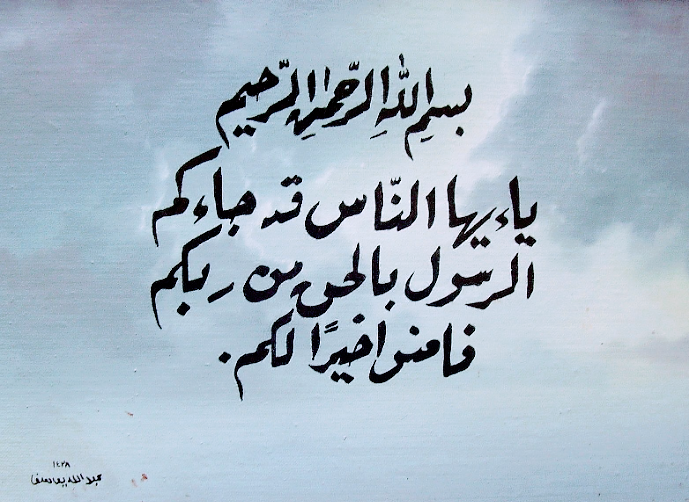 بسمِ اللهِ الرّحمٰنِ الرّحيم
ياءيها النّاس قد جاءكم
الرسول بالحق من ربكم
فامنوا خيرًا لكم.
١٤٢٨
عبدالله